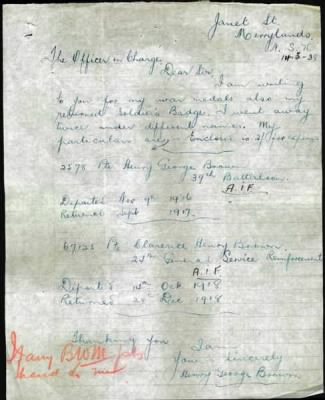 Janet St
Merrylands,
N.S.W
14-5-38
The Officer in Charge,
Dear Sir,
I am writing
to you for my war medals also my
returned Soldier's Badge. I went away
twice under different names. My
particulars are - Enclose is 2/- for expenses
2578 Pte Henry George Brown
39th Battalion.
A.I.F
Departed Nov 9th 1916
Returned Sept 1917.
67125 Pte Clarence Henry Brown.
General Service Reinforcement
A.I.F
Departed Oct 1918
Returned Dec 1918
Thanking you
I am
Yours Sincerely
Henry George Brown
BWM
hand to me